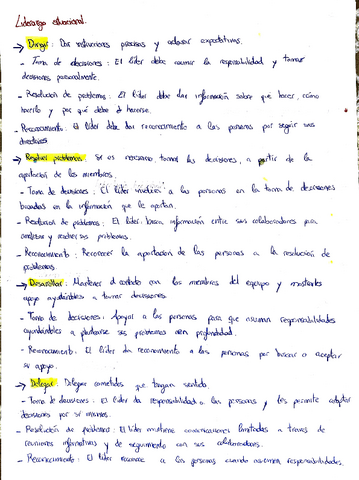 Liderazgo situacional.
→ Dirigir: Dar instrucciones precisas y aclarar expectativas.
- Toma de decisiones: El líder debe asumir la responsabilidad y tomar
decisiones personalmente.
- Resolución de problemas: El líder debe dar información sobre qué hacer, cómo
hacerlo y por qué debe hacerse.
- Reconocimiento: El líder debe dar reconocimiento a las personas por seguir sus
directivas.
→ Resolver problemas: Si es necesario, tomar las decisiones, a partir de la
aportación de los miembros.
- Toma de decisiones: El líder involucra a las personas en la toma de decisiones
basadas en la información que le aportan.
- Resolución de problemas: El líder busca información entre sus colaboradores para
analizar y resolver sus problemas.
- Reconocimiento: Reconocer la aportación de las personas a la resolución de
problemas.
→ Desarrollar: Mantener el contacto con los miembros del equipo y mostrarles
apoyo ayudándoles a tomar decisiones.
- Toma de decisiones: Apoyar a las personas para que asuman responsabilidades
ayudándoles a plantearse sus problemas con profundidad.
- Reconocimiento: El líder da reconocimiento a las personas por buscar o aceptar
su apoyo.
→ Delegar: Delegar cometidos que tengan sentido.
- Toma de decisiones: El líder da responsabilidad a las personas y les permite adoptar
decisiones por sí mismas.
- Resolución de problemas: El líder mantiene comunicaciones limitadas a través de
reuniones informativas y de seguimiento con sus colaboradores.
- Reconocimiento: El líder reconoce a las personas cuando asumen responsabilidades.